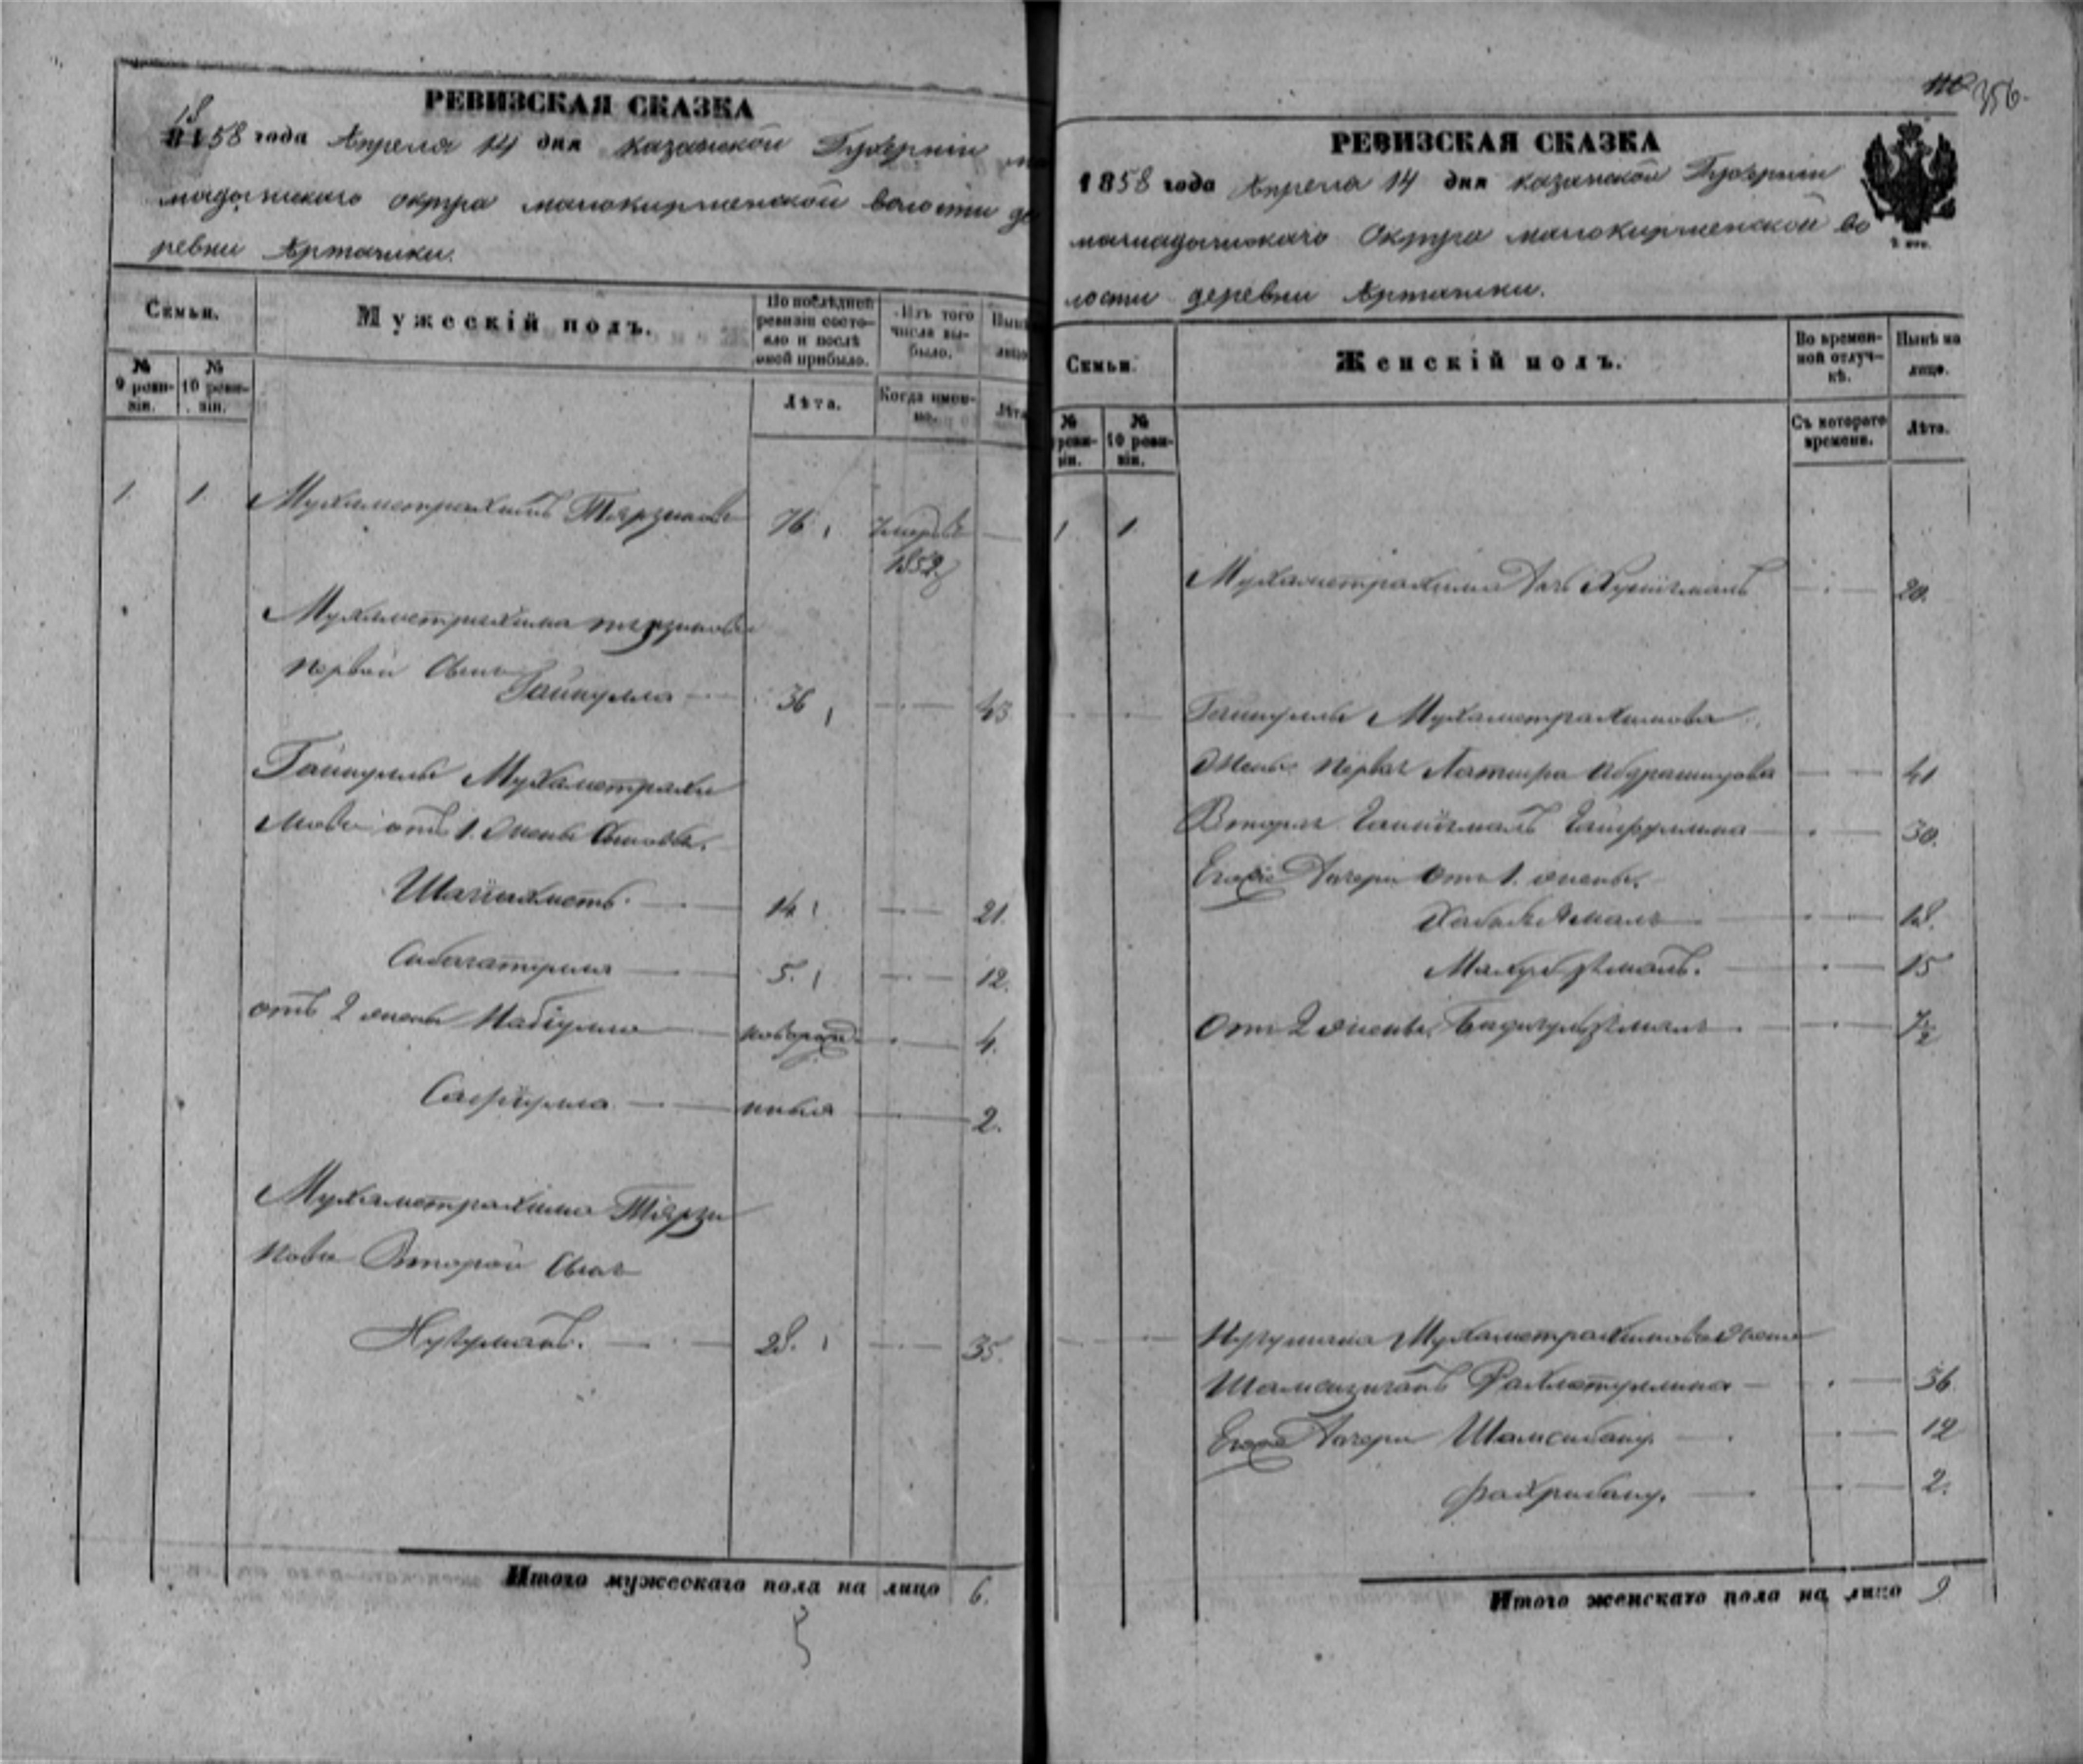 РЕВИЗСКАЯ СКАЗКА
1858 года Апреля 14 дня казанской Губерніи ма
мадышскаго округа малокирменской волости де
ревни Арташки.
Семьи.
Мужескій полъ.
По послѣдней ревизіи состояло и послѣ оной прибыло.
Изъ того числа выбыло.
Нынѣ лицо
№ 9 ревизіи.
№ 10 ревизіи.
Лѣта.
Когда именно.
Лѣта
1. 1. Мухаметрахимъ Тярзимовъ 76 1852
Мухаметрахима
первой Сынъ
Гайнулла 36 43
Гайнуллы Мухаметрахи
мова отъ 1. жены Сыновья.
Шагиахметъ 14 21.
Сибагатулла 5. 12.
отъ 2 жены Набіулла новорожд 4.
Сафіулла 2.
Мухаметрахима Тярзи
мова Второй Сынъ
Нугуманъ. 28. 35.
Итого мужескаго пола на лицо 6.
356.
РЕВИЗСКАЯ СКАЗКА
1858 года Апреля 14 дня казанской Губерніи
мамадышскаго Округа малокирменской во
лости деревни Арташки.
Семьи.
Женскій полъ.
Во временной отлучкѣ.
Нынѣ на лицо.
№ ревизіи.
№ 10 ревизіи.
Съ котораго времени.
Лѣта.
1 1
Мухаметрахима Дочь 20.
Гайнуллы Мухаметрахимова
Жены: первая Латыфа Абдрашитова 41
Вторая 30.
Его Дочери отъ 1. жены.
18.
15
Отъ 2 жены, 7
Нугумана Мухаметрахимова жена
Рахматуллина 36
Его Дочери Шамсибану. 12
Фахрибану. 2.
Итого женскаго пола на лицо 9